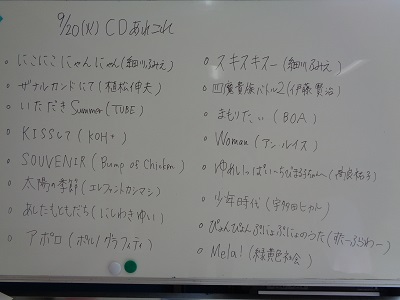 9/20(火) CDあれこれ
○ にこにこにゃんにゃん(細川ふみえ)
○ ザナルカンドにて(植松伸夫)
○ いただきSummer(TUBE)
○ KISSして(KOH+)
○ SOUVENIR(Bump of Chicken)
○ 太陽の季節(エレファントカシマシ)
○ あしたもともだち(にしわきゆい)
○ アポロ(ポルノグラフィティ)
○ スキスキスー(細川ふみえ)
○ 四魔貴族バトル2(伊藤賢治)
○ まもりたい(BOA)
○ Woman(アン・ルイス)
○ ゆめいっぱい(高良祐子)
○ 少年時代(宇多田ヒカル)
○ ぴょんぴょんぷりぷにょのうた(ずーふらわー)
○ Mela!(緑黄色社会)